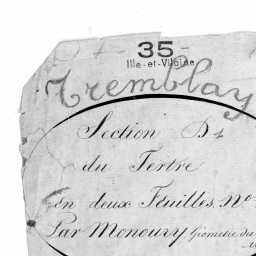 35
Ille-et-Vilaine
Tremblay
Section D4
du Tertre
en deux Feuilles, No
Par Monoury, Géomètre du